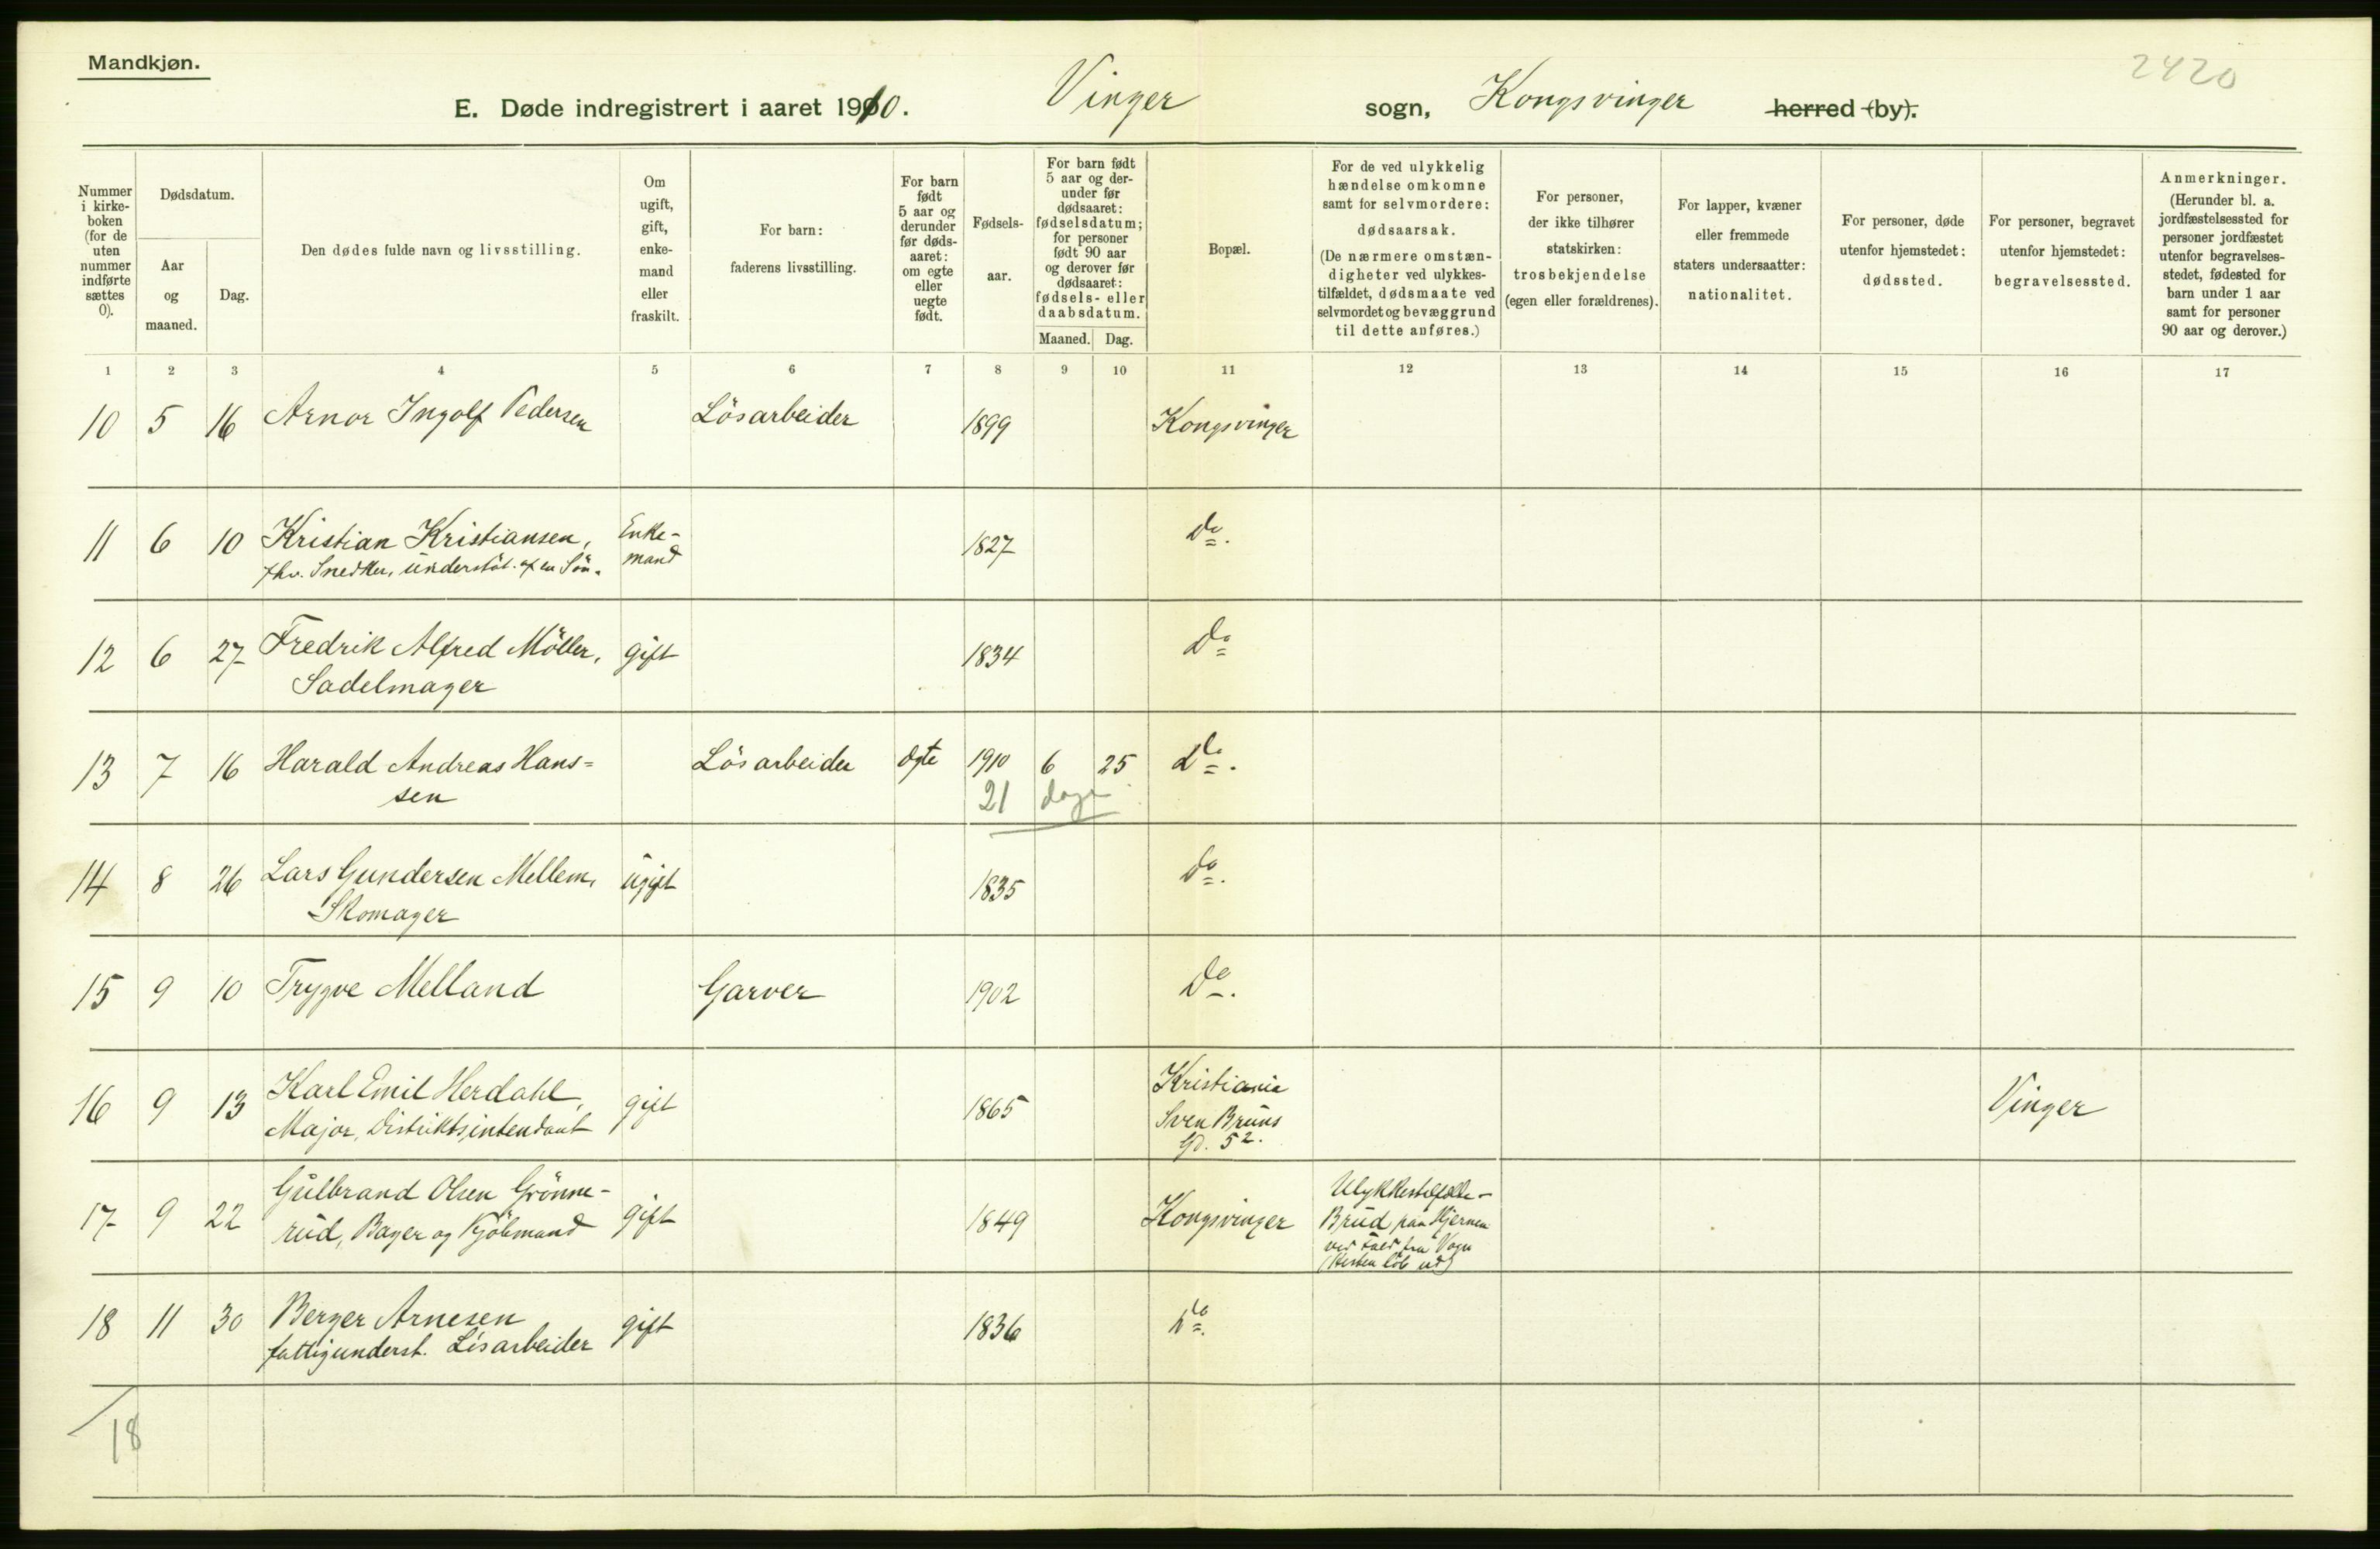 Mandkjøn.
2420
E. Døde indregistrert i aaret 1910. Vinger sogn, Kongsvinger herred (by).
Nummer i kirke-boken (for de uten nummer indførte sættes 0).
Dødsdatum.
Aar og maaned.
Dag.
Den dødes fulde navn og livsstilling.
Om ugift, gift, enke-mand eller fraskilt.
For barn: faderens livsstilling.
For barn født 5 aar og derunder før døds-aaret: om egte eller uegte født.
Fødsels-aar.
For barn født 5 aar og der-under før dødsaaret: fødselsdatum; for personer født 90 aar og derover før dødsaaret: fødsels- eller daabsdatum.
Maaned. Dag.
Bopæl.
For de ved ulykkelig hændelse omkomne samt for selvmordere: dødsaarsak. (De nærmere omstæn-digheter ved ulykkes-tilfældet, dødsmaate ved selvmordet og bevæggrund til dette anføres.)
For personer, der ikke tilhører statskirken: trosbekjendelse (egen eller forældrenes).
For lapper, kvæner eller fremmede staters undersaatter: nationalitet.
For personer, døde utenfor hjemstedet: dødssted.
For personer, begravet utenfor hjemstedet: begravelsessted.
Anmerkninger. (Herunder bl. a. jordfæstelsessted for personer jordfæstet utenfor begravelses-stedet, fødested for barn under 1 aar samt for personer 90 aar og derover.)
1 2 3 4 5 6 7 8 9 10 11 12 13 14 15 16 17
10 5 16 Arnor Ingolf Pedersen Lösarbeider 1899 Kongsvinger
11 6 10 Kristian Kristiansen, Enke- 1827 do.
fhv. Snedker, understöt. af en Sön. mand
12 6 27 Fredrik Alfred Möller, gift 1834 Do
Sadelmager
13 7 16 Harald Andreas Hans= Lösarbeider Egte 1910 6 25 do.
sen 21 dage
14 8 26 Lars Gundersen Mellem, ugift 1835 do.
Skomager
15 9 10 Trygve Melland Garver 1902 Do.
16 9 13 Karl Emil Herdahl, gift 1865 Kristiania Vinger
Major, Distriktsintendant Sven Bruns
Gd. 52.
17 9 22 Gulbrand Olsen Grönne- gift 1849 Kongsvinger Ulykkestilfælde-
rud, Bager og Kjöbmand Brud paa Hjernen
ved Fald fra Vogn
(Hesten löb ud)
18 11 30 Berger Arnesen gift 1836 do.
fattigunderst. Lösarbeider
18